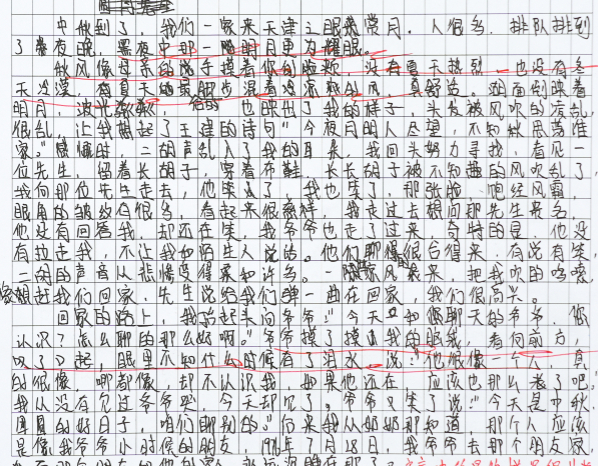 中秋到了，我们一家来天津之眼来赏月。人很多，排队排到
了黑夜晚，黑夜中那一轮明月更为耀眼。
秋风像母亲的手摸着你的脸颊，没有夏天热烈，也没有冬
天冷漠，有夏天的 也混着冷凉 风，真舒适。河面倒映着
明月，波光粼粼， 也映出了我的样子，头发被风吹的凌乱，
很乱，让我想起了王建的诗句"今夜月明人尽望，不知秋思落谁
家。"感慨时，二胡声乱入了我的耳朵，我回头努力寻找，看见一
位先生，留着长胡子，穿着布鞋，长长胡子被不知趣的风吹乱了，
我向那位先生走去，他笑了，我也笑了，那张脸，饱经风霜，
眼角的皱纹有很多，看起来很慈祥，我走过去想问那先生姓名，
他没有回答我，却还在笑，我爷爷也走了过来，奇特的是，他没
有拉走我，不让我和陌生人说话。他们聊得很合得来，有说有笑，
二胡的声音从悲惨变得柔和许多。一阵凉风袭来，把我吹的咯嗦，
家想赶我们回家，先生说给我们弹一曲在回家，我们很高兴。
回家的路上，我抬起头问爷爷："今天 和您聊天的爷爷，您
认识？怎么聊的那么好啊。"爷爷摸了摸 我的脑袋，看向前方，
叹了口起，眼里不知什么时候有了泪水，说："他很像一个人，真
的很像，哪都像，却不认识我，如果他还在，应该也那么老了吧。"
我从没有见过爷爷哭，今天却见了。爷爷又笑了说："今天是中秋，
团圆的好日子，咱们聊别的。"后来我从奶奶那知道，那个人应该
是像我爷爷小时候的朋友，1976年7月18日，我爷爷去那个朋友家，